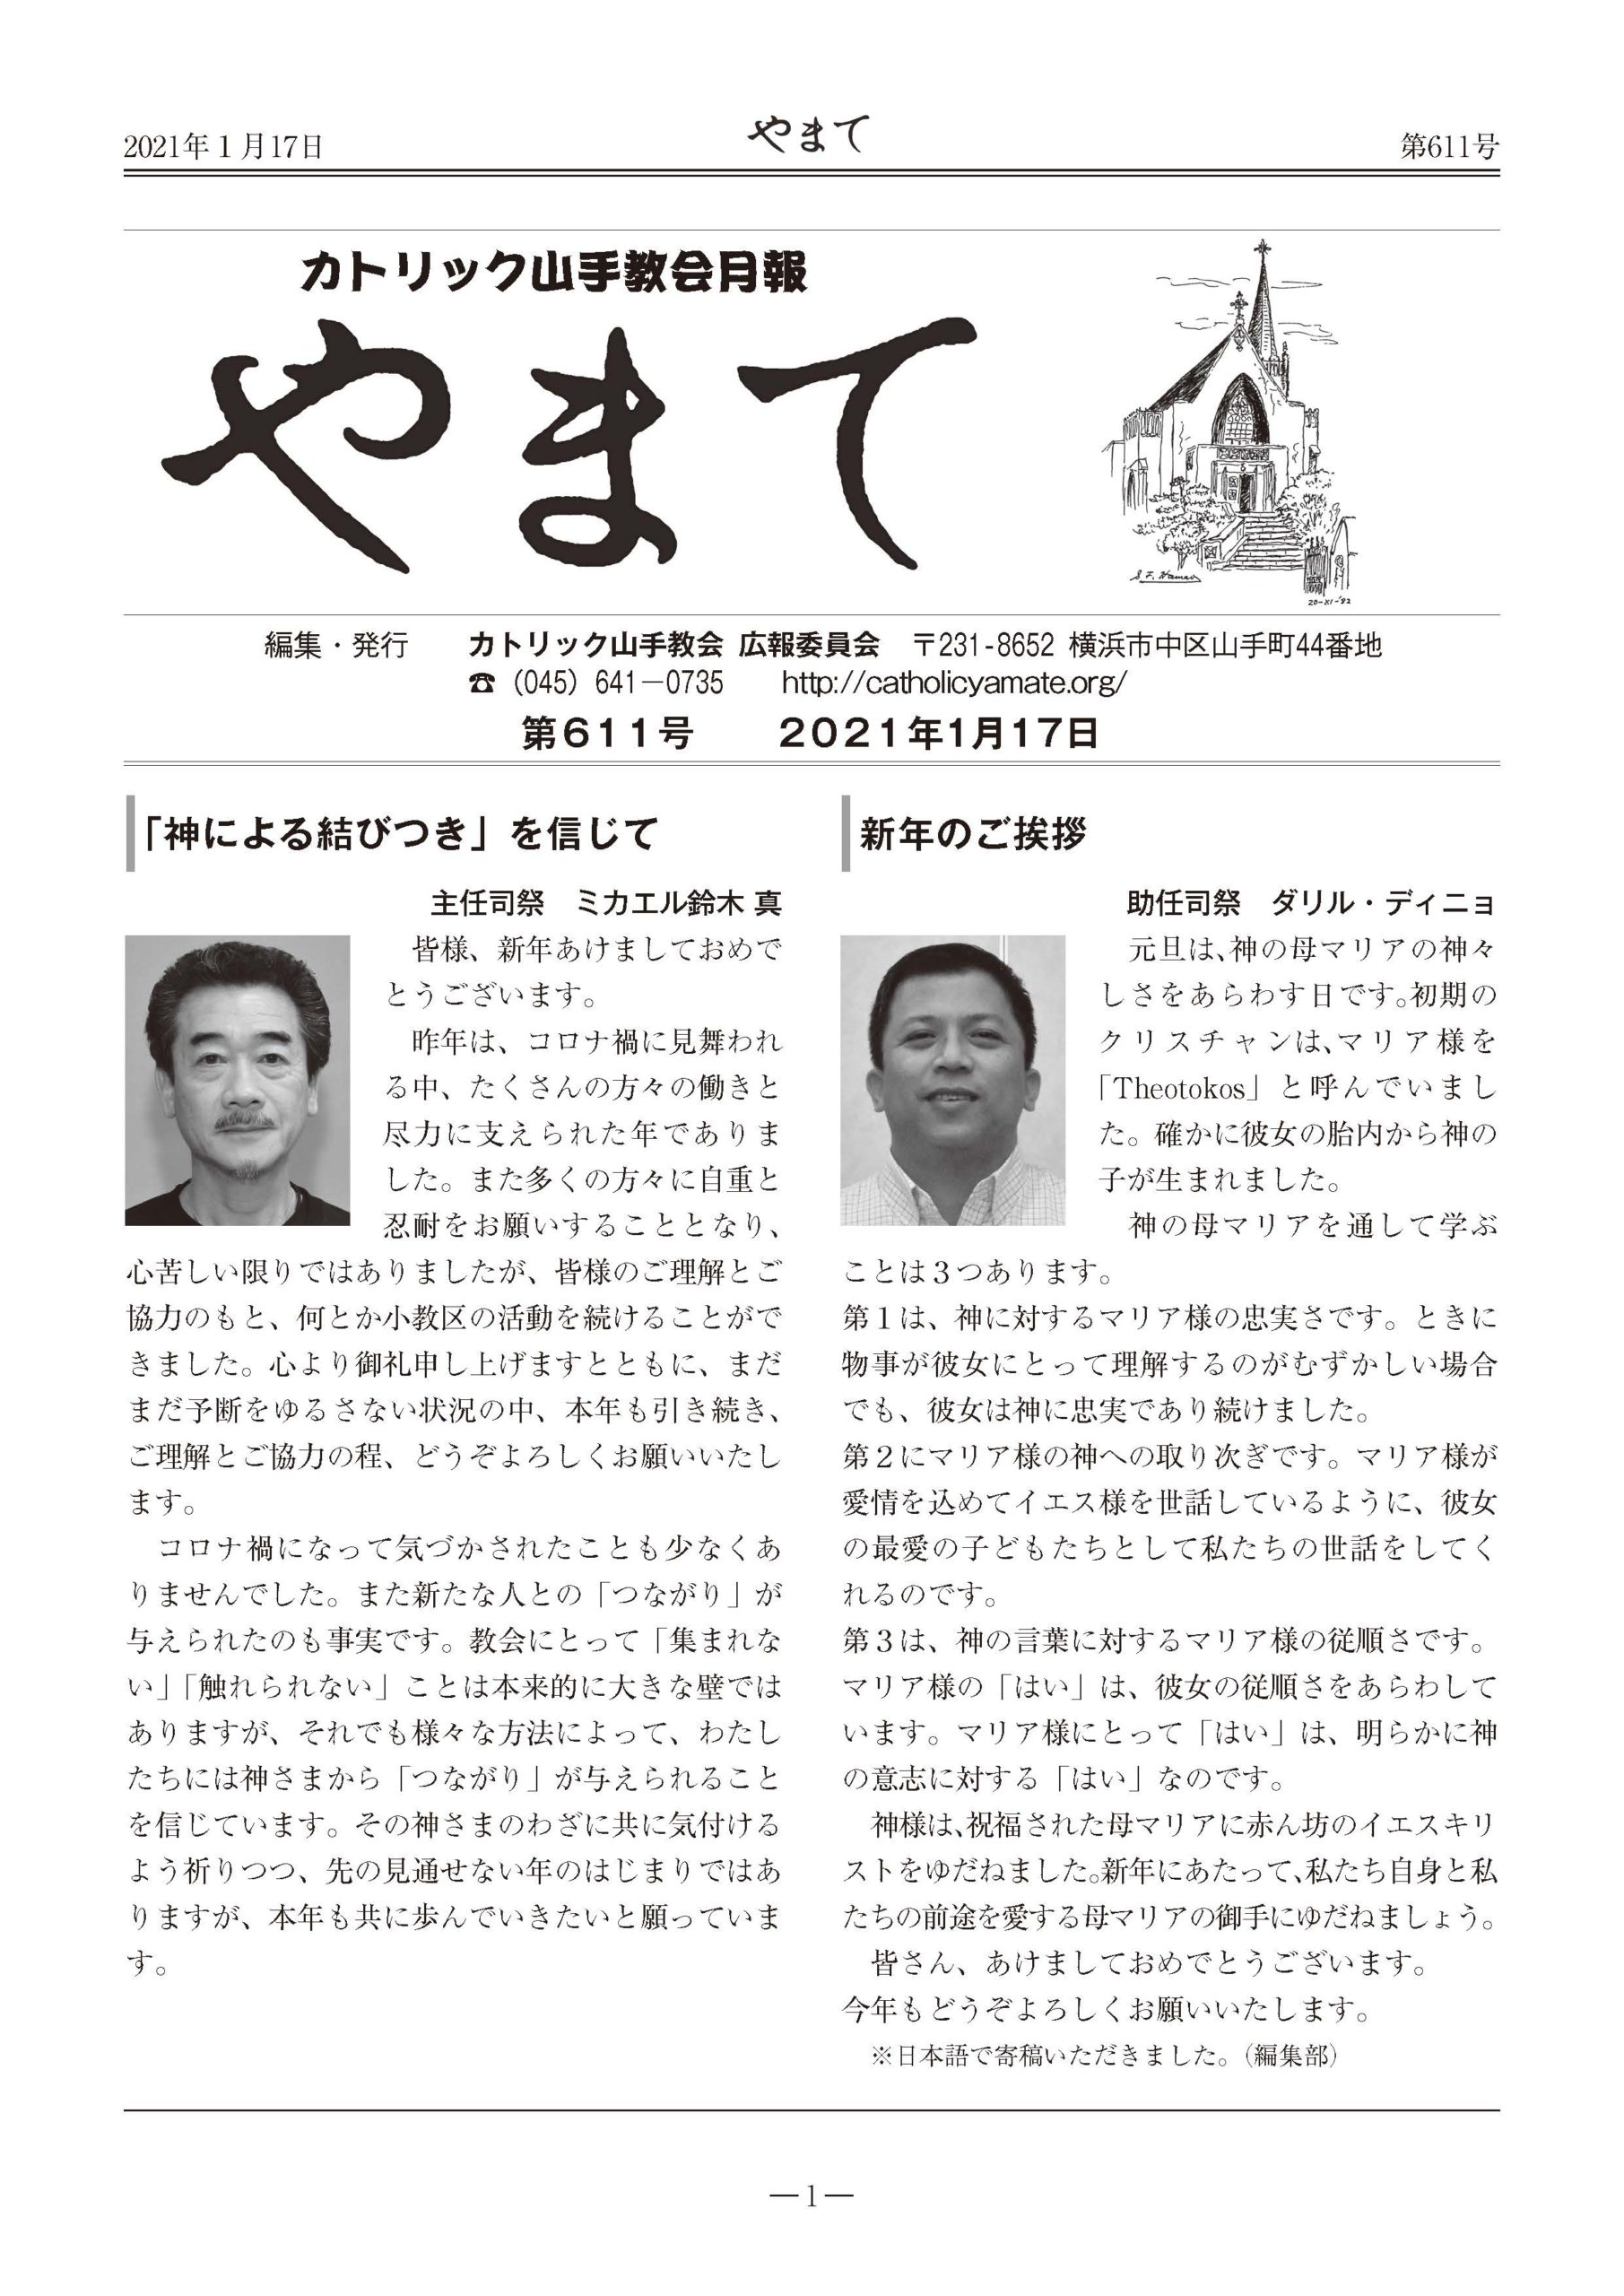 2021年１月17日
やまて
第611号
カトリック山手教会月報
やまて
S.F. Hamao
20-XI-'82
編集・発行　カトリック山手教会 広報委員会　〒231-8652 横浜市中区山手町44番地
☎（045）641－0735　http://catholicyamate.org/
第611号　2021年1月17日
「神による結びつき」を信じて
主任司祭　ミカエル鈴木 真
皆様、新年あけましておめで
とうございます。
昨年は、コロナ禍に見舞われ
る中、たくさんの方々の働きと
尽力に支えられた年でありま
した。また多くの方々に自重と
忍耐をお願いすることとなり、
心苦しい限りではありましたが、皆様のご理解とご
協力のもと、何とか小教区の活動を続けることがで
きました。心より御礼申し上げますとともに、まだ
まだ予断をゆるさない状況の中、本年も引き続き、
ご理解とご協力の程、どうぞよろしくお願いいたし
ます。
コロナ禍になって気づかされたことも少なくあ
りませんでした。また新たな人との「つながり」が
与えられたのも事実です。教会にとって「集まれな
い」「触れられない」ことは本来的に大きな壁では
ありますが、それでも様々な方法によって、わたし
たちには神さまから「つながり」が与えられること
を信じています。その神さまのわざに共に気付ける
よう祈りつつ、先の見通せない年のはじまりではあ
りますが、本年も共に歩んでいきたいと願っていま
す。
新年のご挨拶
助任司祭　ダリル・ディニョ
元旦は、神の母マリアの神々
しさをあらわす日です。初期の
クリスチャンは、マリア様を
「Theotokos」と呼んでいまし
た。確かに彼女の胎内から神の
子が生まれました。
神の母マリアを通して学ぶ
ことは３つあります。
第１は、神に対するマリア様の忠実さです。ときに
物事が彼女にとって理解するのがむずかしい場合
でも、彼女は神に忠実であり続けました。
第２にマリア様の神への取り次ぎです。マリア様が
愛情を込めてイエス様を世話しているように、彼女
の最愛の子どもたちとして私たちの世話をしてく
れるのです。
第３は、神の言葉に対するマリア様の従順さです。
マリア様の「はい」は、彼女の従順さをあらわして
います。マリア様にとって「はい」は、明らかに神
の意志に対する「はい」なのです。
神様は、祝福された母マリアに赤ん坊のイエスキリ
ストをゆだねました。新年にあたって、私たち自身と私
たちの前途を愛する母マリアの御手にゆだねましょう。
皆さん、あけましておめでとうございます。
今年もどうぞよろしくお願いいたします。
※日本語で寄稿いただきました。（編集部）
―1―